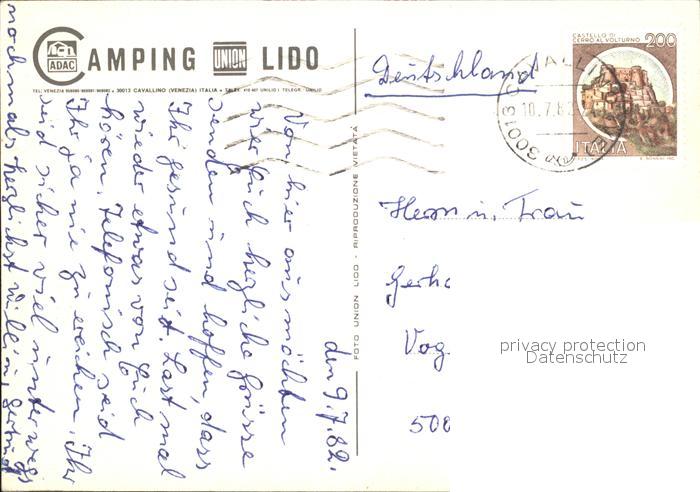 ADAC CAMPING UNION LIDO
30013 CAVALLINO (VENEZIA) ITALIA
den 9.7.82.
Von hier aus möchten
wir Euch herzliche Grüsse
senden und hoffen, dass
Ihr gesund seit. Lasst mal
wieder etwas von Euch
hören. Telefonisch seid
Ihr ja nie zu ereichen. Ihr
seid sicher viel unterwegs
nochmals herzlichst Willi u. Gertrud
FOTO UNION LIDO - RIPRODUZIONE VIETATA
Deutschland
CASTELLO DI
CERRO AL VOLTURNO 200
ITALIA
30013 CAVALLI
10.7.82
Herrn u. Frau
Gerha
Vog
508
privacy protection
Datenschutz